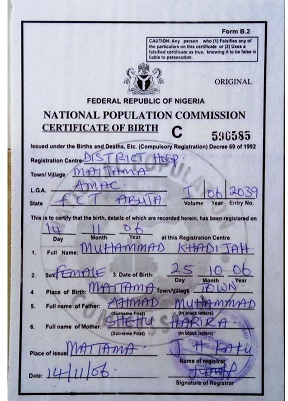 Form B.2
CAUTION: Any person who (1) Falsifies any of
the particulars on this certificate or (2) Uses a
falsified certificate as true, knowing it to be false is
liable to persecution.
ORIGINAL
FEDERAL REPUBLIC OF NIGERIA
NATIONAL POPULATION COMMISSION
CERTIFICATE OF BIRTH C 590585
Issued under the Births and Deaths, Etc. (Compulsory Registration) Decree 69 of 1992
Registration Centre DISTRICT HOSP.
Town/ Village MAITAMA
L.G.A. AMAC
State FCT ABUJA
I 06 2039
Volume Year Entry No.
This is to certify that the birth, details of which are recorded herein, has been registered on
14 11 06 at this Registration Centre
Day Month Year
1. Full Name: MUHAMMAD KHADIJAH
2. Sex FEMALE 3. Date of Birth: 25 10 06
Day Month Year
4. Place of Birth MAITAMA Town/Village TOWN
5. Full name of Father: AHMAD MUHAMMAD
(Surname First) (In block letters)
6. Full name of Mother: SHEHU HARIRA
(Surname First) (In block letters)
Place of issue: MAITAMA
Name of registrar
Date: 14/11/06
Signature of Registrar